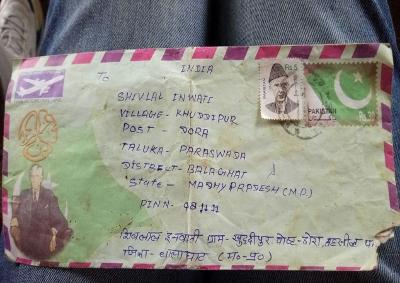 To
INDIA
SHIVLAL INWATI
VILLAGE- KHUDDIPUR
POST - DORA
TALUKA- PARASWADA
DISTRICT- BALAGHAT
State- MADHYPRADESH (M.P.)
PINN-
शिवलाल इनवाती ग्राम- खुद्दीपुर पोस्ट- डोरा, तहसील
जिला- बालाघाट (म०-प्र०)
Rs.5
PAKISTAN
Rs.20